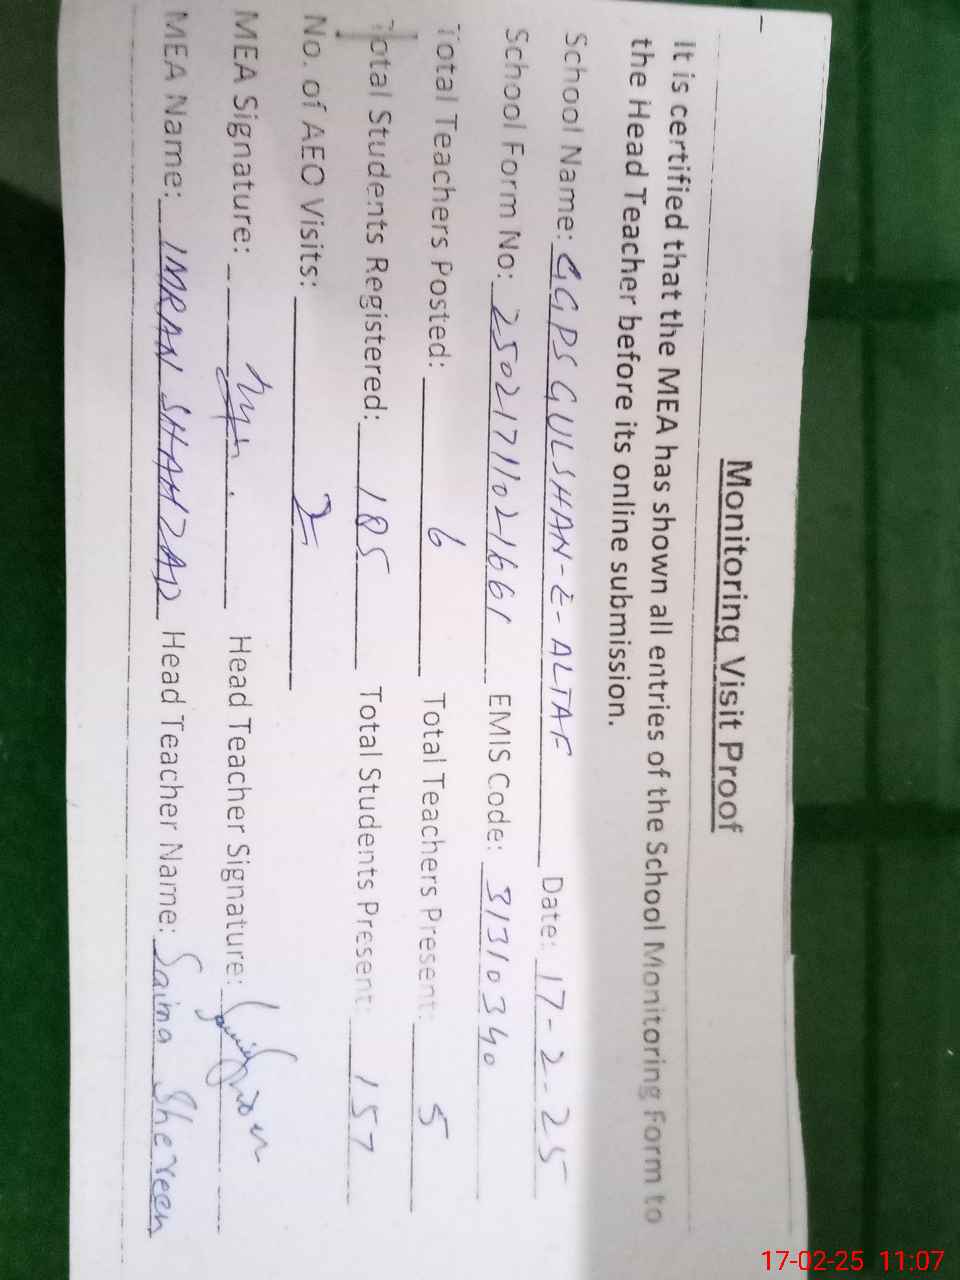 Monitoring Visit Proof
It is certified that the MEA has shown all entries of the School Monitoring Form to
the Head Teacher before its online submission.
School Name: GGPS GULSHAN-E-ALTAF Date: 17-2-25
School Form No: 25021711021661 EMIS Code: 31310340
Total Teachers Posted: 6 Total Teachers Present: 5
Total Students Registered: 185 Total Students Present: 157
No. of AEO Visits: 2
MEA Signature: Head Teacher Signature:
MEA Name: IMRAN SHAHZAD Head Teacher Name: Saima Shereen
17-02-25 11:07